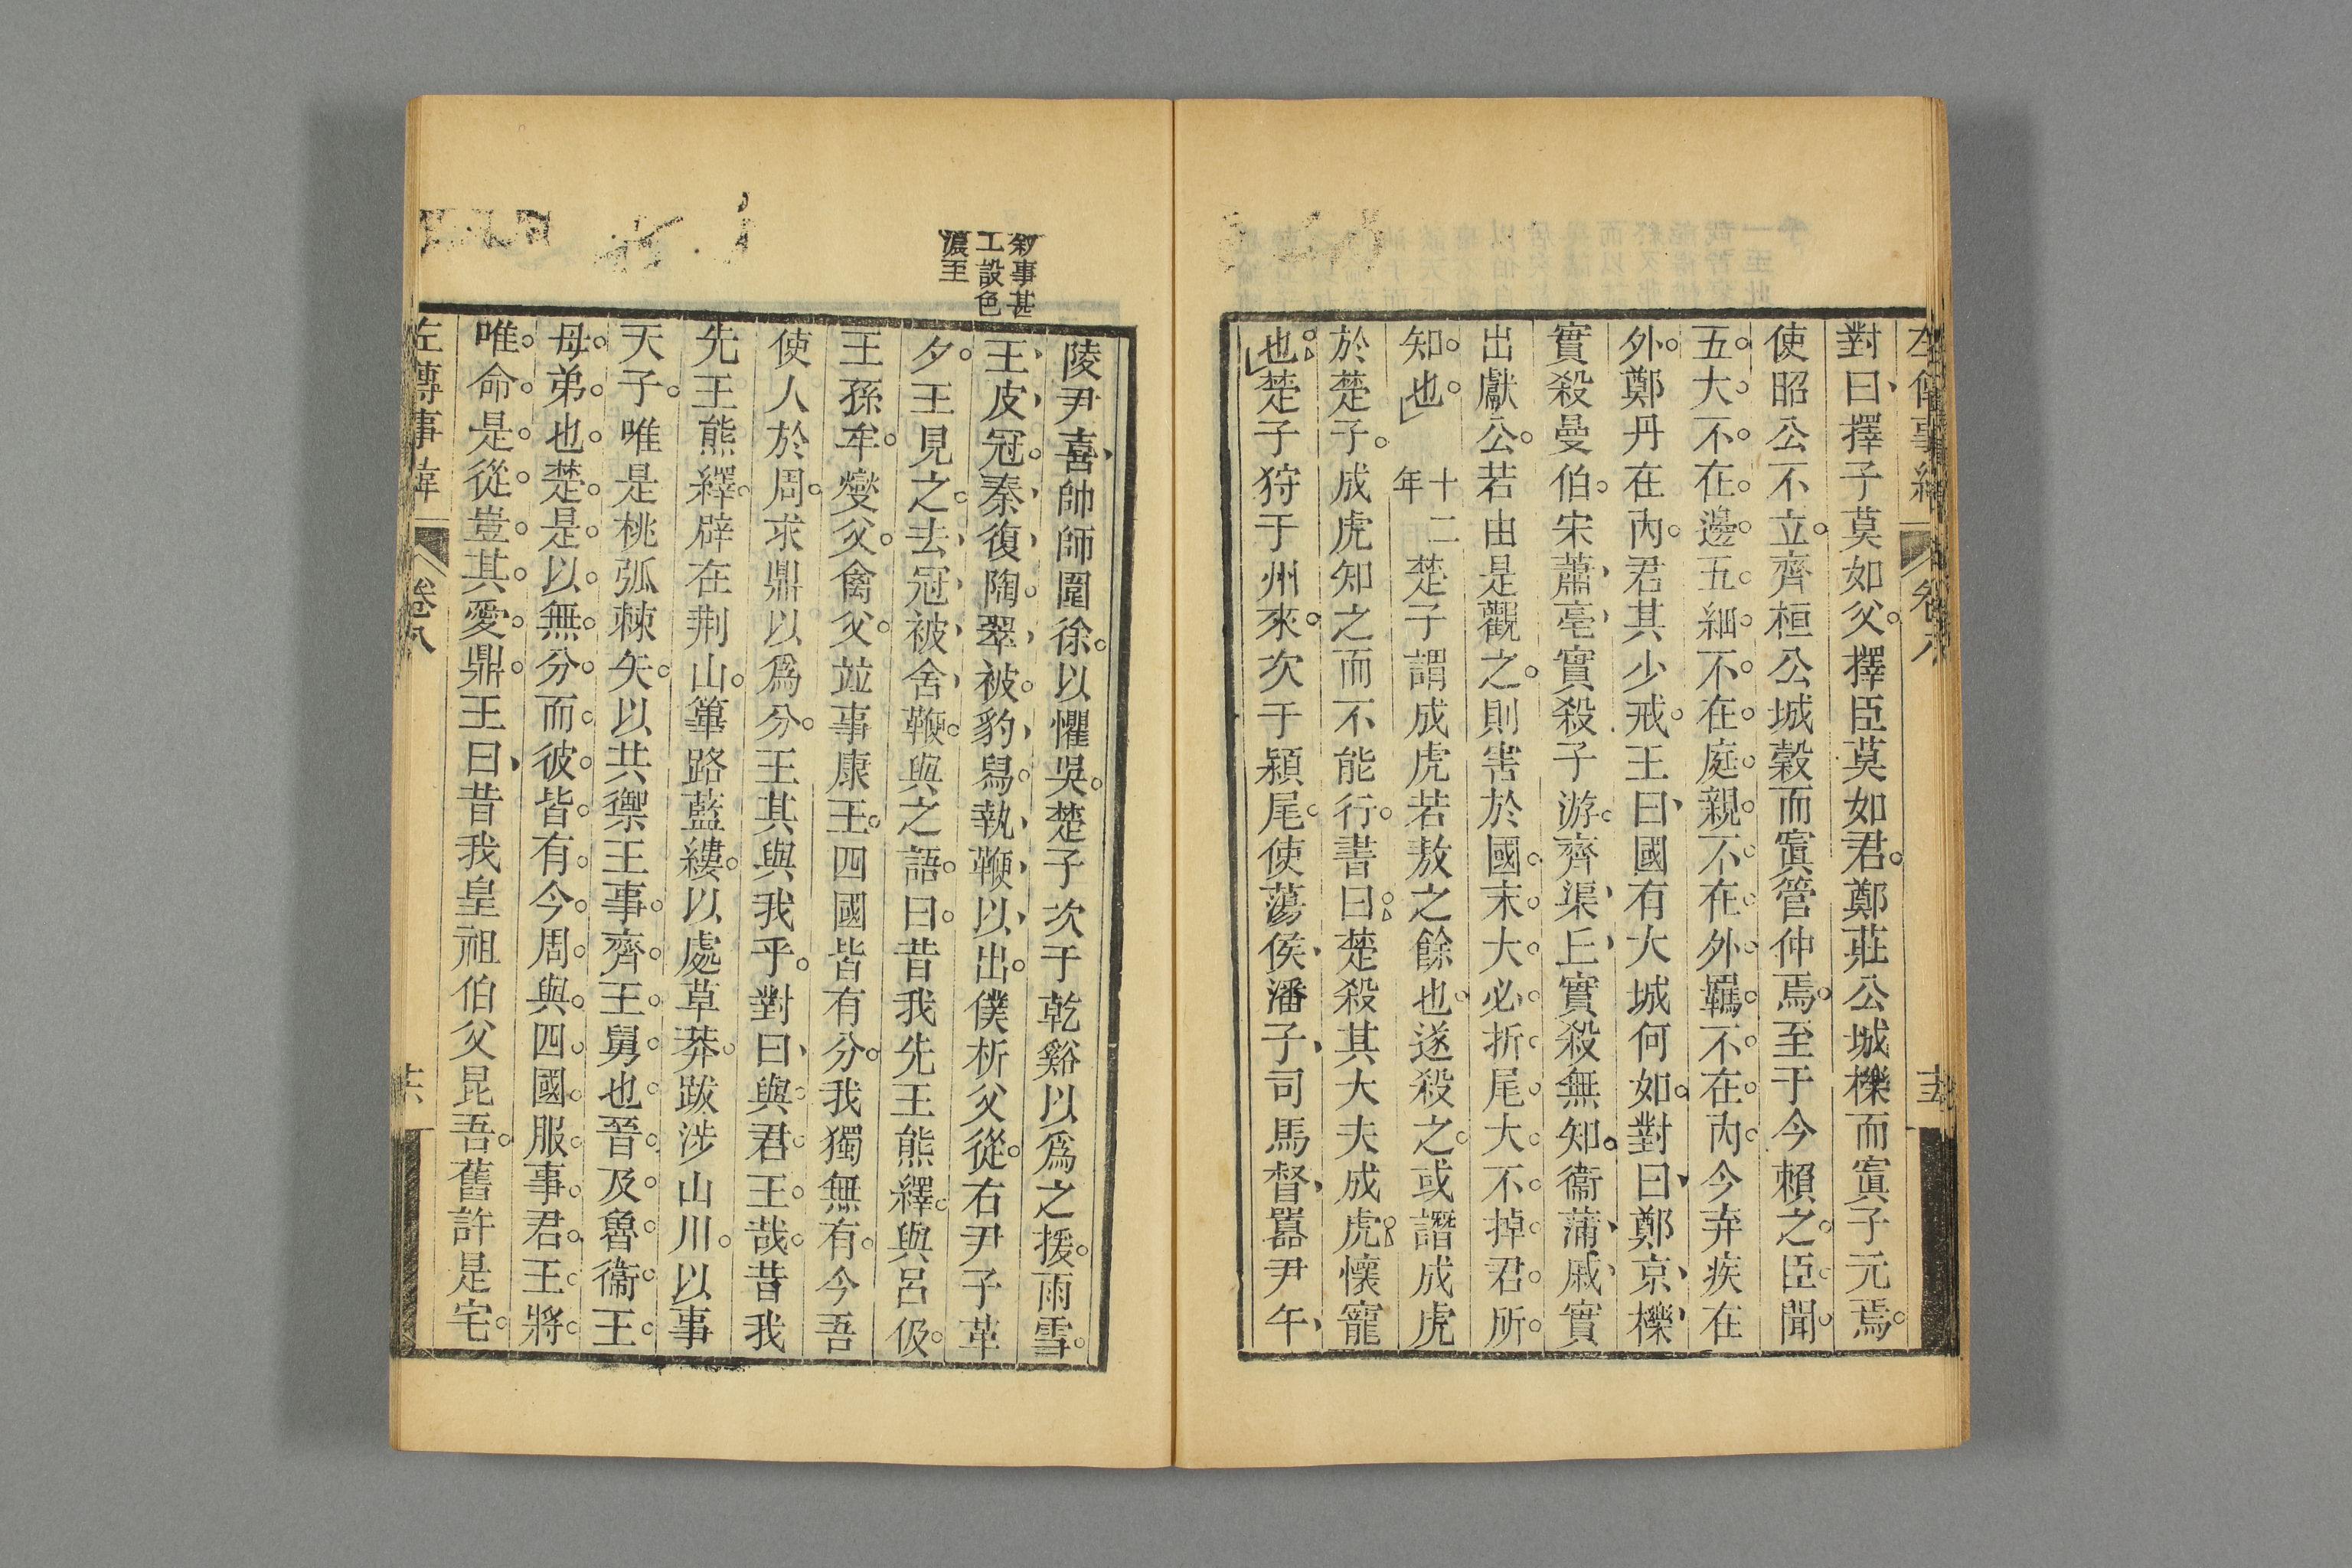 左傳事緯 卷八
對曰擇子莫如父擇臣莫如君鄭莊公城櫟而寘子元焉
使昭公不立齊桓公城穀而寘管仲焉至于今賴之臣聞
五大不在邊五細不在庭親不在外羈不在內今弃疾在
外鄭丹在內君其少戒王曰國有大城何如對曰鄭京櫟
實殺曼伯宋蕭亳實殺子游齊渠丘實殺無知衞蒲戚實
出獻公若由是觀之則害於國末大必折尾大不掉君所
知也十二年楚子謂成虎若敖之餘也遂殺之或譖成虎
於楚子成虎知之而不能行書曰楚殺其大夫成虎懷寵
也楚子狩于州來次于潁尾使蕩侯潘子司馬督嚻尹午
敘事甚
工設色
濃至
陵尹喜帥師圍徐以懼吳楚子次于乾谿以爲之援雨雪
王皮冠秦復陶翠被豹舄執鞭以出僕析父從右尹子革
夕王見之去冠被舍鞭與之語曰昔我先王熊繹與呂伋
王孫牟燮父禽父竝事康王四國皆有分我獨無有今吾
使人於周求鼎以爲分王其與我乎對曰與君王哉昔我
先王熊繹辟在荆山篳路藍縷以處草莽跋涉山川以事
天子唯是桃弧棘矢以共禦王事齊王舅也晉及魯衞王
母弟也楚是以無分而彼皆有今周與四國服事君王將
唯命是從豈其愛鼎王曰昔我皇祖伯父昆吾舊許是宅
左傳事緯 卷八